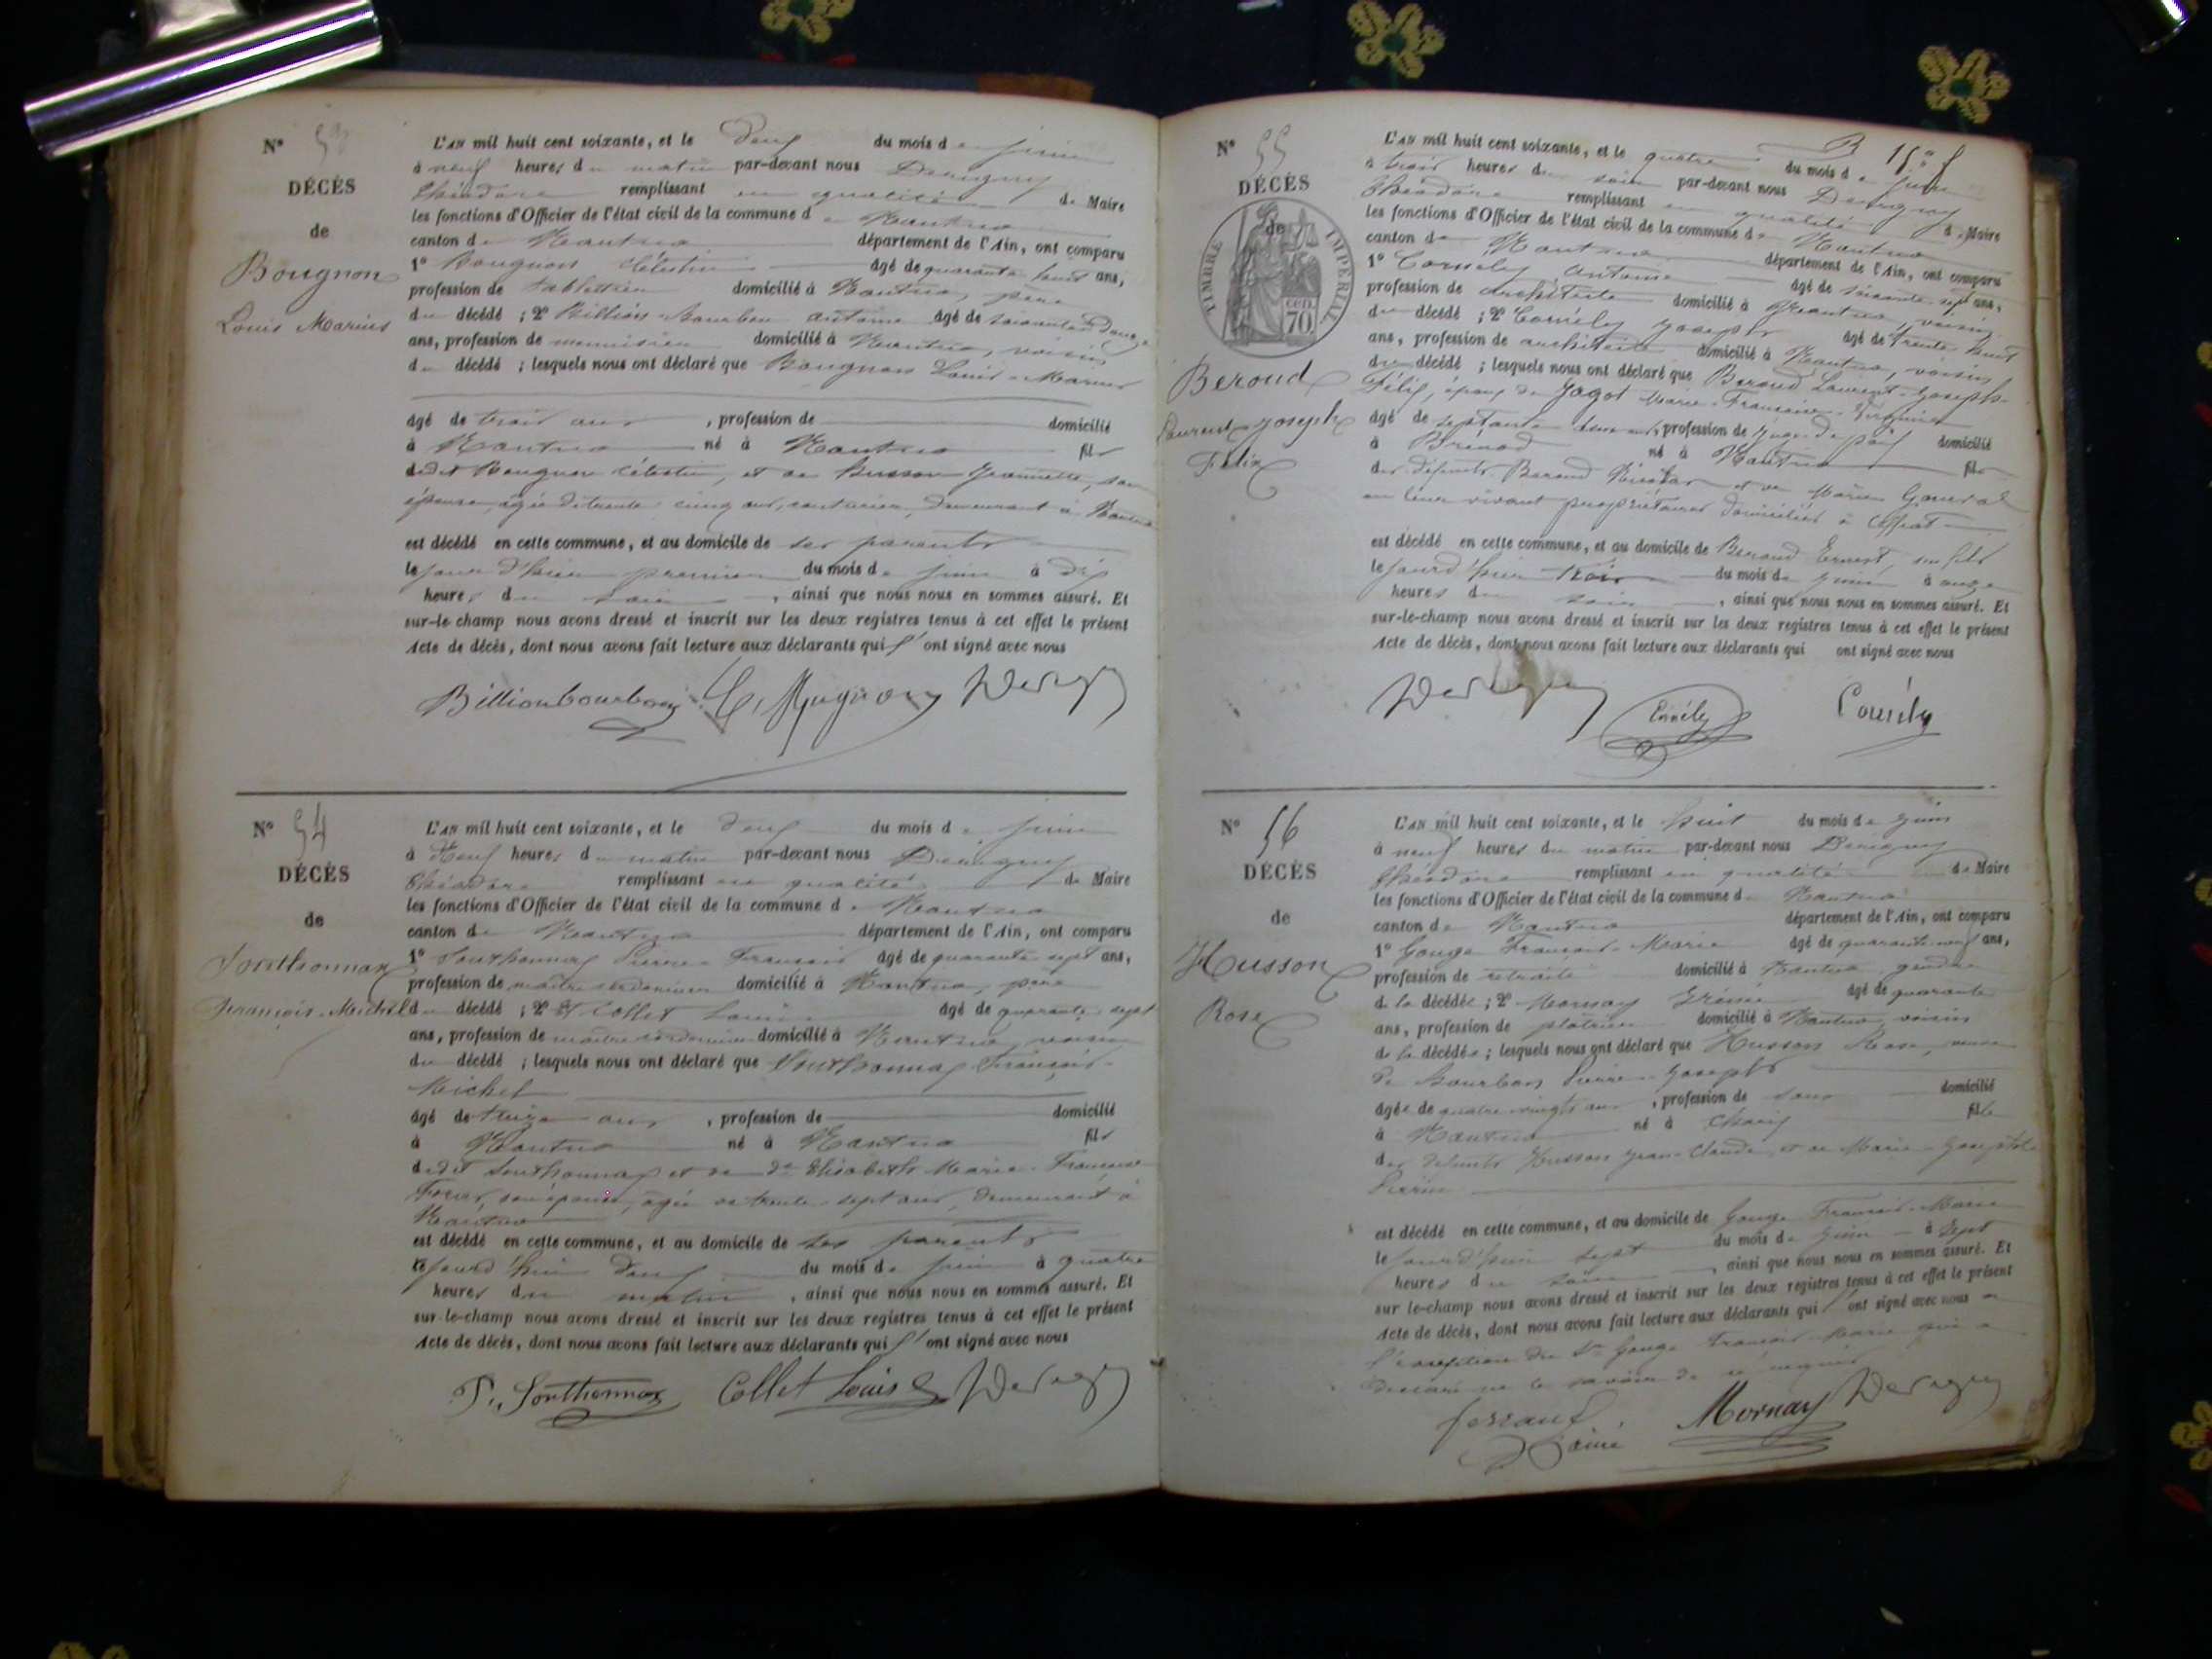 N° 53
DÉCÈS
de
Bougnon
Louis Marius
L'AN mil huit cent soixante, et le deux du mois de juin
à neuf heures du matin par-devant nous Derugny
Théodore remplissant en qualité de Maire
les fonctions d'Officier de l'état civil de la commune de Nantua
canton de Nantua département de l'Ain, ont comparu
1° Bougnon Célestin âgé de quarante huit ans,
profession de tablettier domicilié à Nantua, père
du décédé ; 2° Billion Bourbon antoine âgé de soixante douze
ans, profession de menuisier domicilié à Nantua, voisin
du décédé ; lesquels nous ont déclaré que Bougnon Louis-Marius
âgé de trois ans, profession de domicilié
à Nantua né à Nantua fils
dudit Bougnon Célestin, et de Busson Jeannette, son
épouse, âgée de trente cinq ans, couturière, demeurant à Nantua
est décédé en cette commune, et au domicile de ses parents
le jour d'hier premier du mois de juin à dix
heures du soir, ainsi que nous nous en sommes assuré. Et
sur-le champ nous avons dressé et inscrit sur les deux registres tenus à cet effet le présent
Acte de décès, dont nous avons fait lecture aux déclarants qui l'ont signé avec nous
Billionbourbon
N° 54
DÉCÈS
de
Jonthonnax
François-Michel
L'AN mil huit cent soixante, et le deux du mois de juin
à Neuf heures du matin par-devant nous Derugny
Théodore remplissant en qualité de Maire
les fonctions d'Officier de l'état civil de la commune de Nantua
canton de Nantua département de l'Ain, ont comparu
1° Jonthonnax Pierre-François âgé de quarante sept ans,
profession de maître cordonnier domicilié à Nantua, père
du décédé ; 2° Collet Louis âgé de quarante-sept
ans, profession de maître cordonnier domicilié à Nantua, voisin
du décédé ; lesquels nous ont déclaré que Jonthonnax François-
Michel
âgé de treize ans, profession de domicilié
à Nantua né à Nantua fils
dudit Jonthonnax et de de Elisabeth Marie-Françoise
son épouse, âgée de trente-sept ans, demeurant à
Nantua
est décédé en cette commune, et au domicile de ses parents
le jourd'hui deux du mois de juin à quatre
heures du matin, ainsi que nous nous en sommes assuré. Et
sur-le-champ nous avons dressé et inscrit sur les deux registres tenus à cet effet le présent
Acte de décès, dont nous avons fait lecture aux déclarants qui l'ont signé avec nous
P. Jonthonnax Collet Louis
N° 55
DÉCÈS
de
TIMBRE IMPÉRIAL
cen. 70
Beroud
Laurent Joseph
Félix
L'AN mil huit cent soixante, et le quatre du mois de juin
à trois heures du soir par-devant nous Derugny
Théodore remplissant en qualité de Maire
les fonctions d'Officier de l'état civil de la commune de Nantua
canton de Nantua département de l'Ain, ont comparu
1° Cornély antoine âgé de soixante-sept ans,
profession de architecte domicilié à Nantua, voisin
du décédé ; 2° Cornély Joseph âgé de trente huit
ans, profession de architecte domicilié à Nantua, voisin
du décédé ; lesquels nous ont déclaré que Beroud Laurent-Joseph-
Félix, époux de Jagot Marie-Françoise-Virginie
âgé de septante deux ans, profession de Juge de paix domicilié
à Brénod né à Nantua fils
des défunts Beroud Nicolas et de Marie
en leur vivant propriétaires domiciliés à
est décédé en cette commune, et au domicile de Beroud Ernest, son fils
le jourd'hier trois du mois de juin à onze
heures du soir, ainsi que nous nous en sommes assuré. Et
sur-le-champ nous avons dressé et inscrit sur les deux registres tenus à cet effet le présent
Acte de décès, dont nous avons fait lecture aux déclarants qui ont signé avec nous
Cornély Cornély
N° 56
DÉCÈS
de
Husson
Rose
L'AN mil huit cent soixante, et le huit du mois de juin
à neuf heures du matin par-devant nous Derugny
Théodore remplissant en qualité de Maire
les fonctions d'Officier de l'état civil de la commune de Nantua
canton de Nantua département de l'Ain, ont comparu
1° Gouge François-Marie âgé de quarante neuf ans,
profession de retraité domicilié à Nantua gendre
de la décédée ; 2° Mornay âgé de quarante
ans, profession de plâtrier domicilié à Nantua, voisin
de la décédée ; lesquels nous ont déclaré que Husson Rose, veuve
de Bourbon Pierre-Joseph
âgée de quatre vingts ans, profession de sans domicilié
à Nantua né à fille
des défunts Husson Jean-Claude, et de Marie-Josephte
est décédé en cette commune, et au domicile de Gouge François-Marie
le jourd'hier sept du mois de juin à sept
heures du soir, ainsi que nous nous en sommes assuré. Et
sur le-champ nous avons dressé et inscrit sur les deux registres tenus à cet effet le présent
Acte de décès, dont nous avons fait lecture aux déclarants qui l'ont signé avec nous à
l'exception du Sr Gouge François-Marie qui a
déclaré ne le savoir de ce requis
ainé Mornay